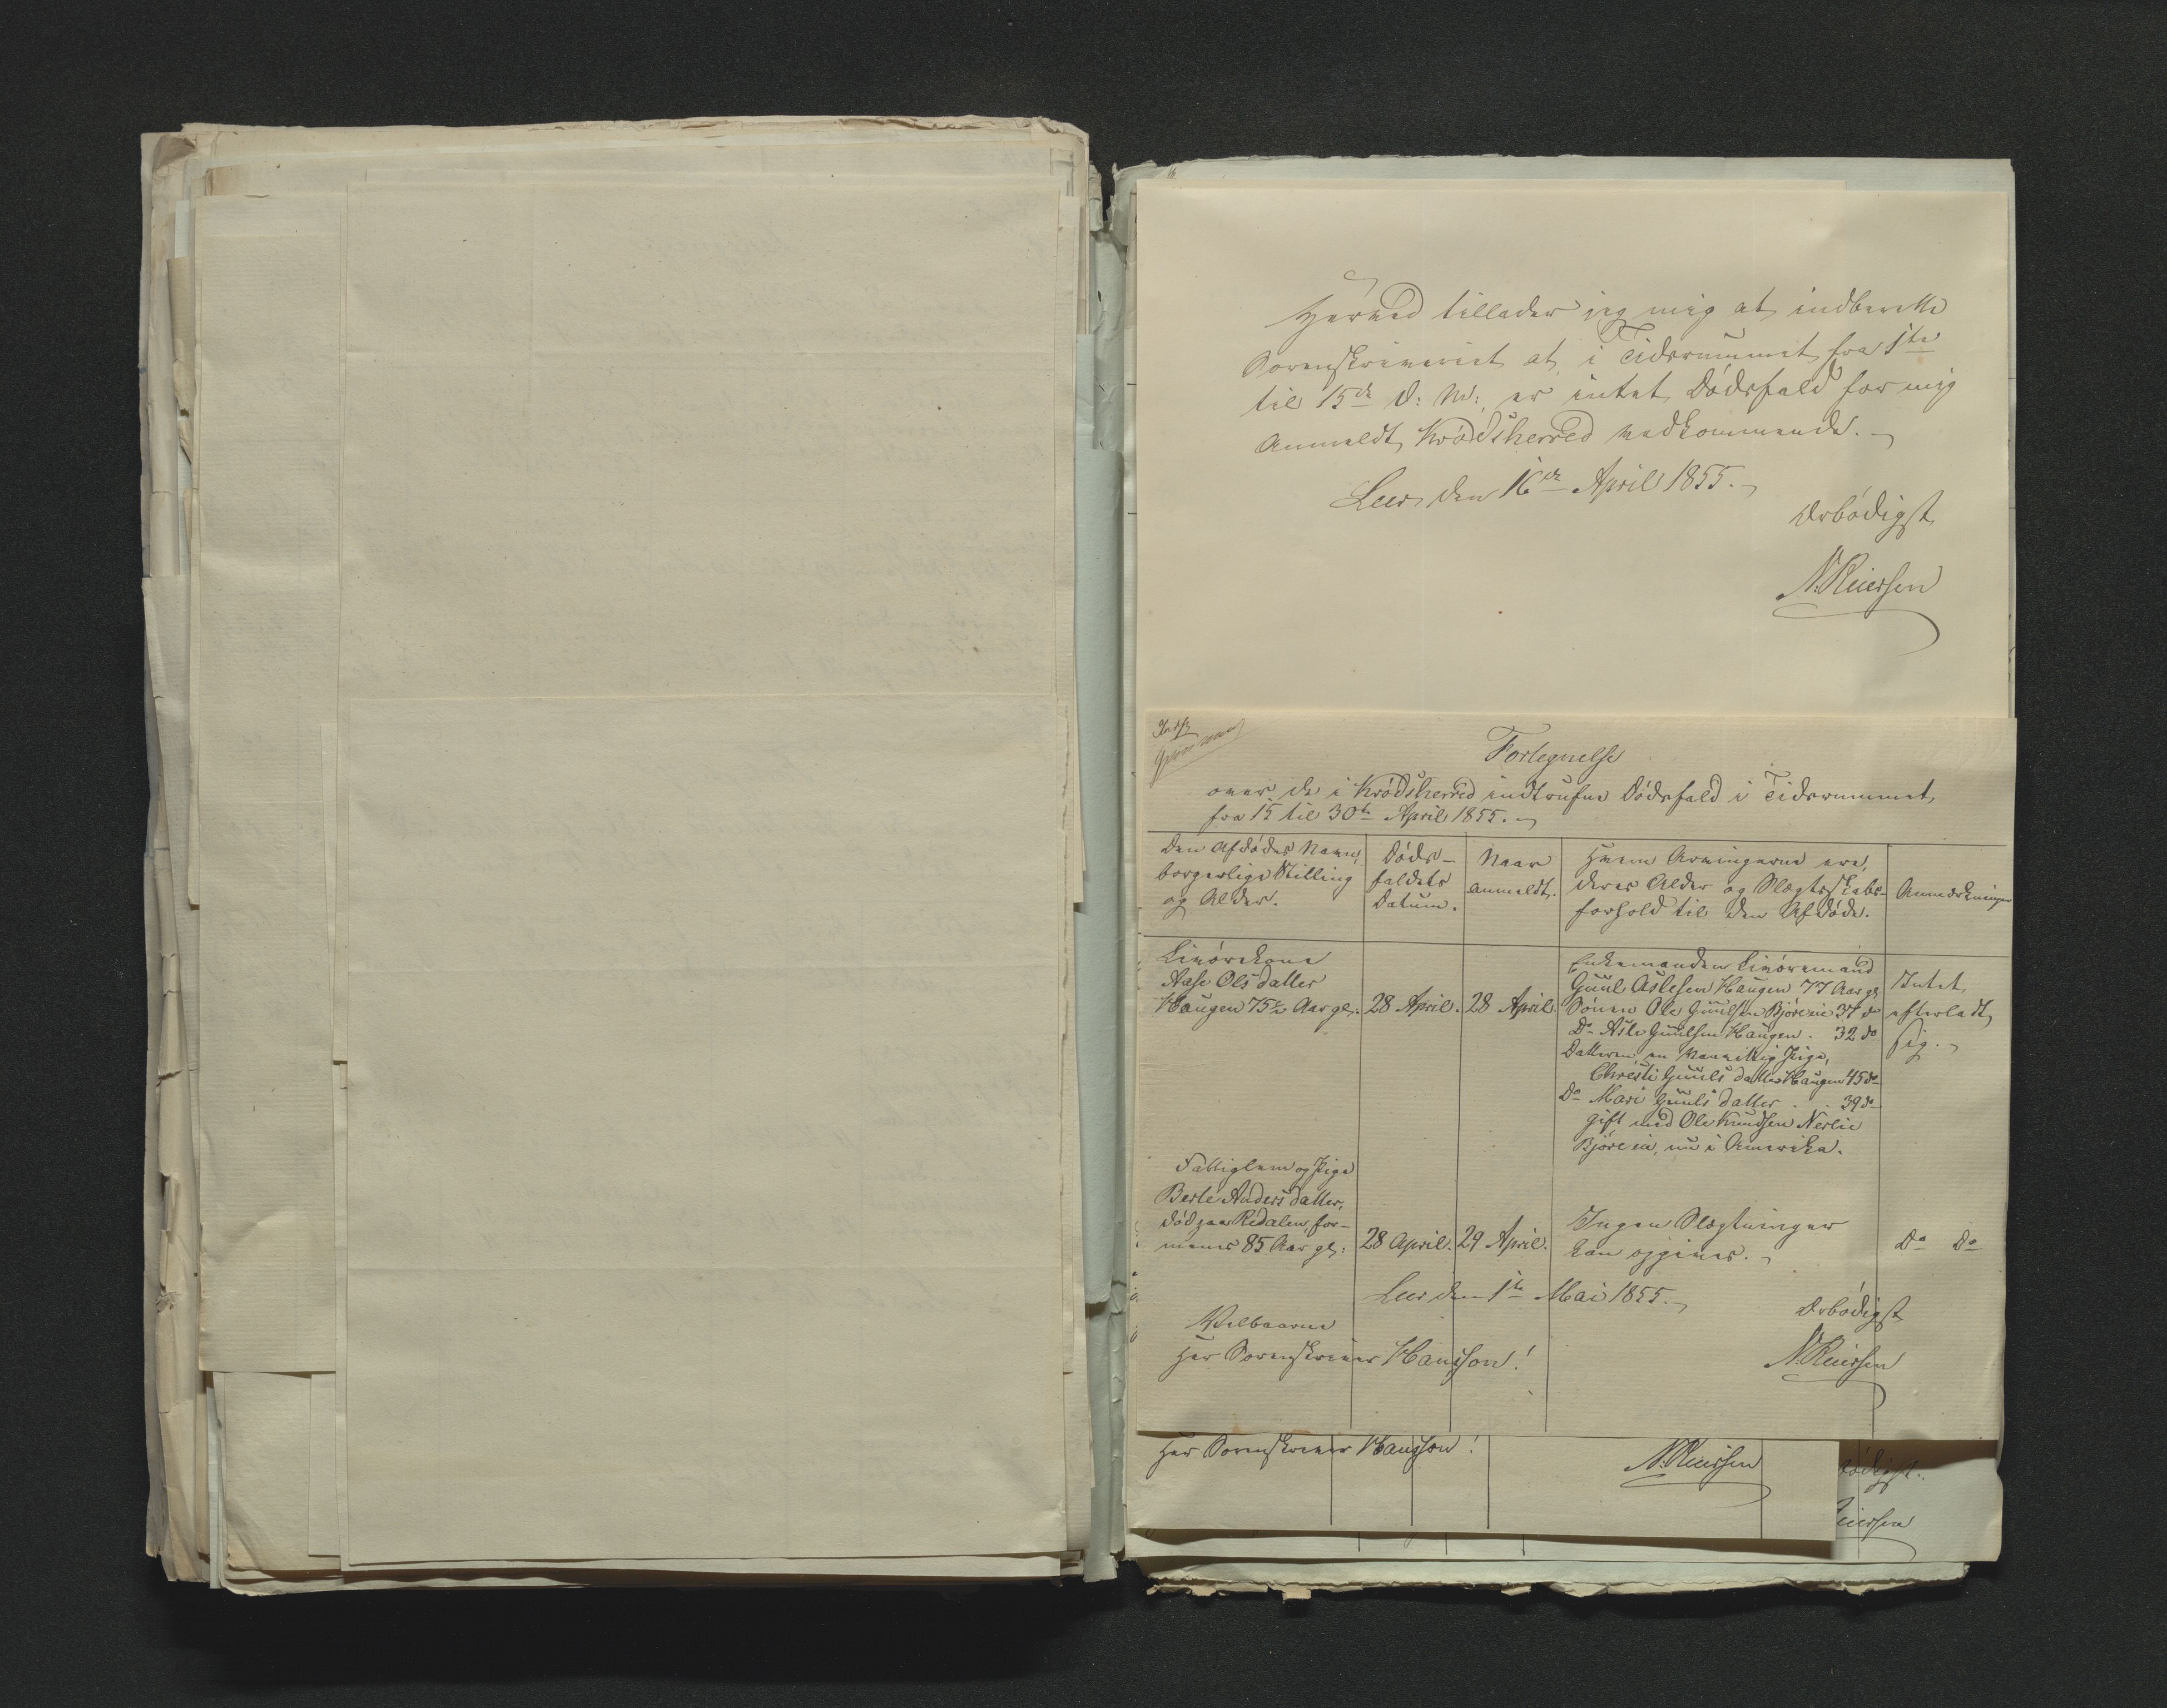 Herved tillader jeg mig at indberette
Sorenskriveriet at i Tidsrummet fra 1ste
til 15de d: M: er intet Dødsfald for mig
Anmeldt, Krødsherred vedkommende.
Leer den 16de April 1855.
Ærbødigst
N. Reiersen
Fortegnelse
over de i Krødsherred indtrufne Dødsfald i Tidsrummet
fra 15 til 30te April 1855.
Den Afdødes Navn,
borgerlige Stilling
og Alder.
Døds-
faldets
Datum.
Naar
anmeldt.
Hvem Arvingerne ere,
deres Alder og Slægtskabs-
forhold til den Afdøde.
Anmærkninger
Livørekone
Aase Olsdatter
Haugen 75 1/2 Aar gl.
28 April.
28 April.
Enkemanden Livøremand
Guul Aslesen Haugen 77 Aar gl.
Sønnen Ole Guulsen Bjøreie 37 do
Do Asle Guulsen Haugen . 32 do
Datteren, en Vanvittig Pige,
Christi Guulsdatter Haugen 45 do
Do Mari Guulsdatter . . 39 do
gift med Ole Knudsen Nerlie
Bjøreie, nu i Amerika.
Intet
efterladt
sig.
Fattiglem og Pige
Berte Andersdatter,
død paa Redalen for-
menes 85 Aar gl:
28 April.
29 April.
Ingen Slægtninger
kan opgives.
Do Do
Leer den 1ste Mai 1855.
Ærbødigst
N. Reiersen
Velbaarne
Hr Sorenskriver Hansson!
Hr Sorenskriver Hansson!
N. Reiersen
bødigst.
eiersen